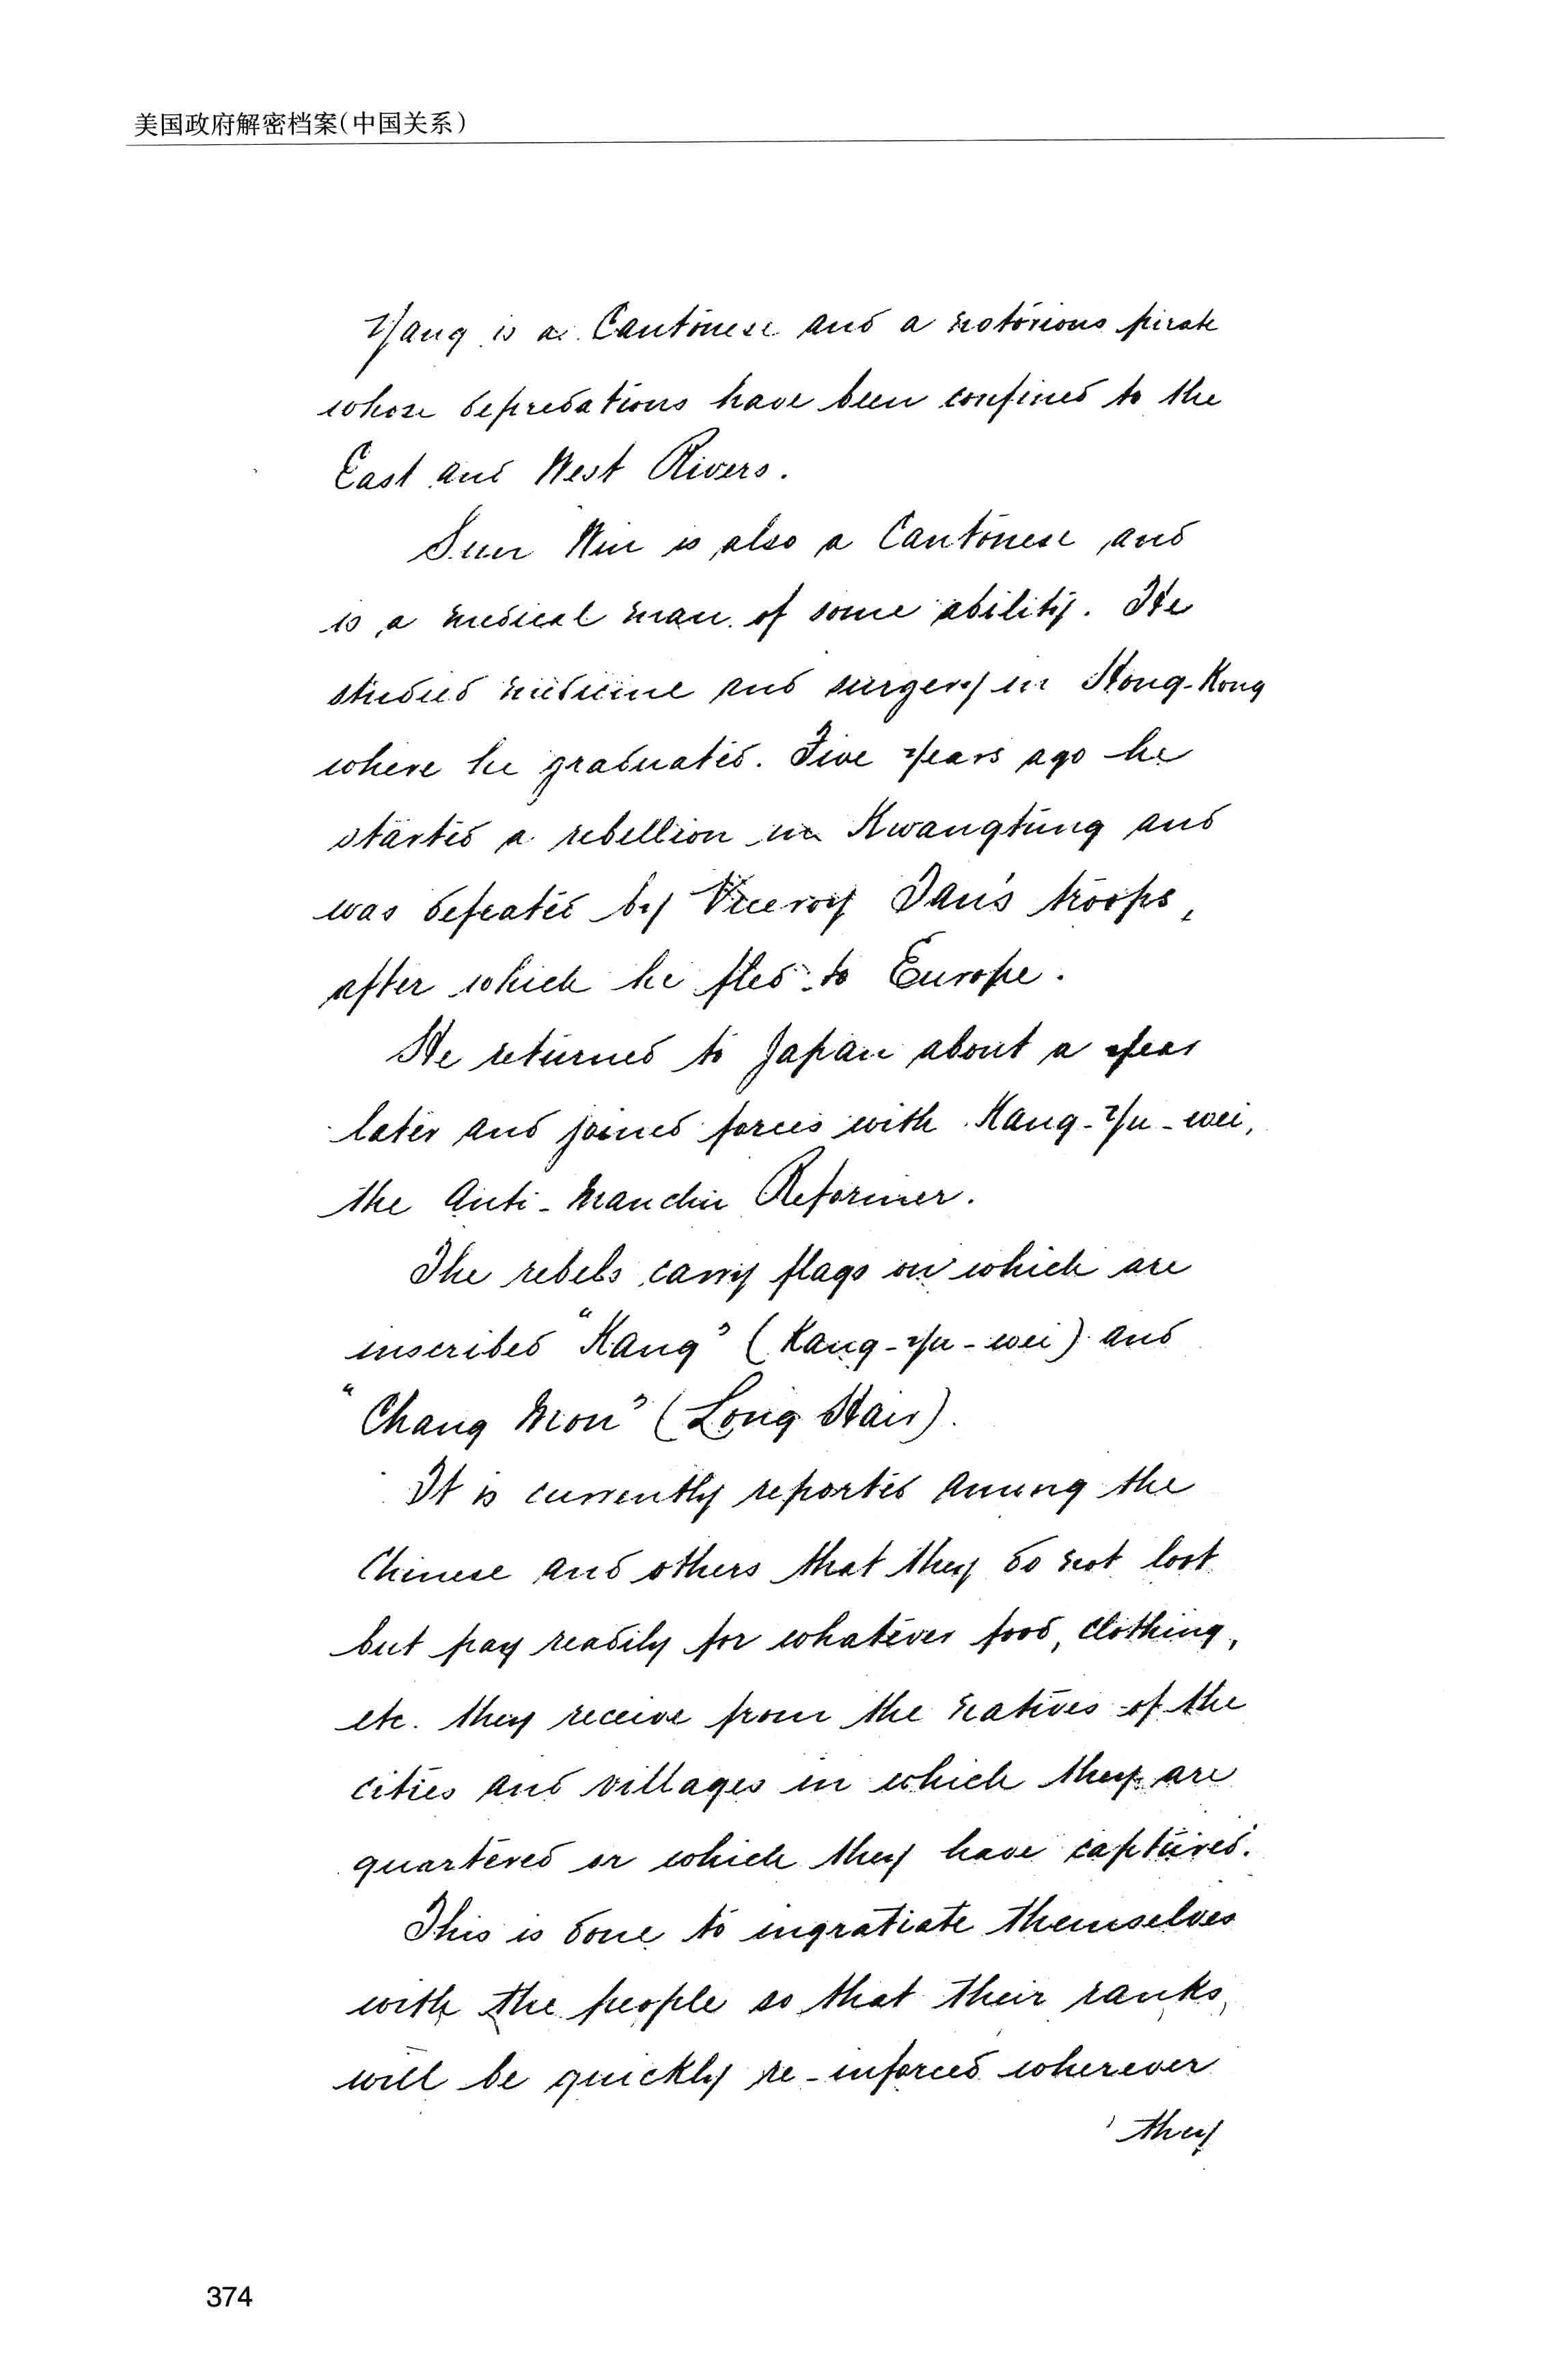 美国政府解密档案(中国关系)
Yang is a Cantonese and a notorious pirate
whose depredations have been confined to the
East and West Rivers.
Sun Win is also a Cantonese and
is a medical man of some ability. He
studied medicine and surgery in Hong-Kong
where he graduated. Five years ago he
started a rebellion in Kwangtung and
was defeated by Viceroy Tan's troops,
after which he fled to Europe.
He returned to Japan about a year
later and joined forces with Kang-Yu-wei,
the Anti-Manchu Reformer.
The rebels carry flags on which are
inscribed "Kang" (Kang-Yu-wei) and
"Chang Mon" (Long Hair).
It is currently reported among the
Chinese and others that they do not loot
but pay readily for whatever food, clothing,
etc. they receive from the natives of the
cities and villages in which they are
quartered or which they have captured.
This is done to ingratiate themselves
with the people so that their ranks
will be quickly re-inforced wherever
they
374